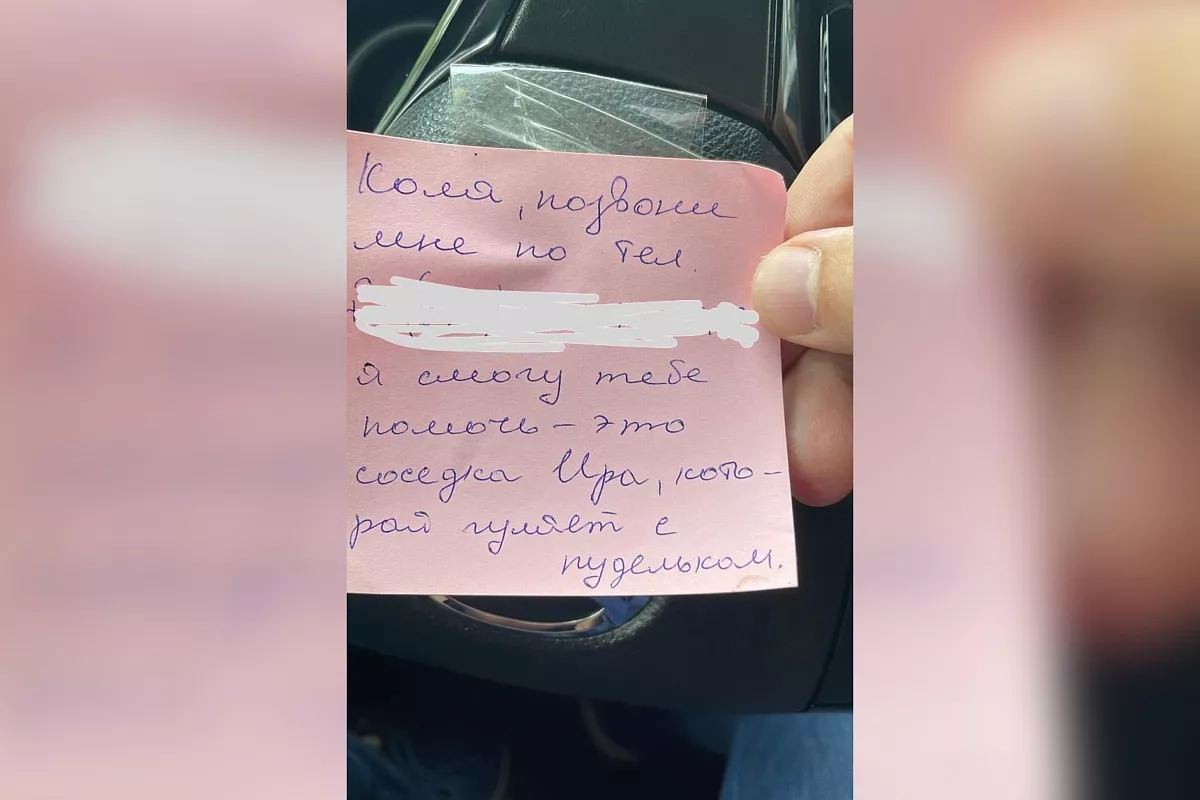 Коля, позвони
мне по тел.
я смогу тебе
помочь – это
соседка Ира, кото-
рая гуляет с
пудельком.